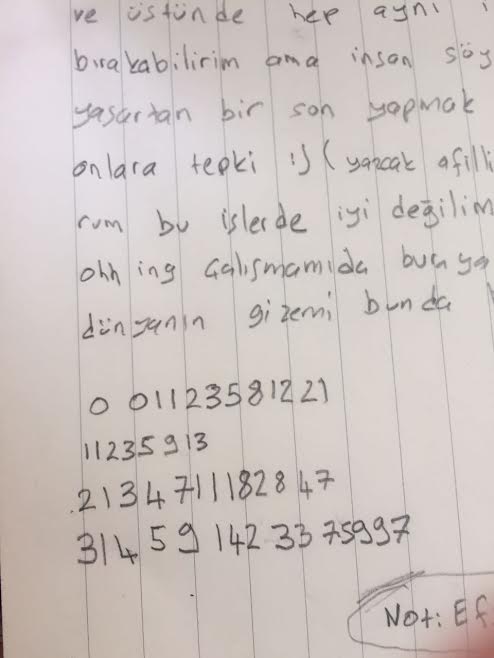 ve üstünde hep aynı i
bırakabilirim ama insan söy
yaşartan bir son yapmak
onlara tepki :) ( yazcak afilli
rum bu işlerde iyi değilim
ohh ing çalışmamıda bura ya
dünyanın gizemi bunda
0 01123581221
11235913
2134711182847
31459142 33 75997
Not: Ef